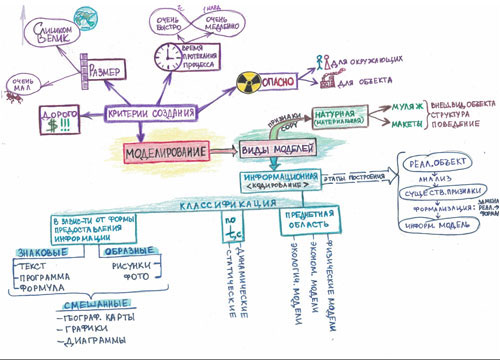 СЛИШКОМ
ВЕЛИК
ОЧЕНЬ
МАЛ
РАЗМЕР
ОЧЕНЬ
БЫСТРО
ОЧЕНЬ
МЕДЛЕННО
ВРЕМЯ
ПРОТЕКАНИЯ
ПРОЦЕССА
ОПАСНО
ДЛЯ ОКРУЖАЮЩИХ
ДЛЯ ОБЪЕКТА
ДОРОГО
$!!!
КРИТЕРИИ СОЗДАНИЯ
МОДЕЛИРОВАНИЕ
ВИДЫ МОДЕЛЕЙ
ПРИЗНАКИ
НАТУРНАЯ
(МАТЕРИАЛЬНАЯ)
МУЛЯЖ
МАКЕТЫ
ВНЕШ.ВИД ОБЪЕКТА
СТРУКТУРА
ПОВЕДЕНИЕ
ИНФОРМАЦИОННАЯ
<КОДИРОВАНИЕ>
ЭТАПЫ ПОСТРОЕНИЯ
РЕАЛ.ОБЪЕКТ
АНАЛИЗ
СУЩЕСТВ.ПРИЗНАКИ
ФОРМАЛИЗАЦИЯ:
ИНФОРМ. МОДЕЛЬ
КЛАССИФИКАЦИЯ
В ЗАВИС-ТИ ОТ ФОРМЫ
ПРЕДОСТАВЛЕНИЯ
ИНФОРМАЦИИ
ЗНАКОВЫЕ
ТЕКСТ
ПРОГРАММА
ФОРМУЛА
ОБРАЗНЫЕ
РИСУНКИ
ФОТО
СМЕШАННЫЕ
– ГЕОГРАФ. КАРТЫ
– ГРАФИКИ
– ДИАГРАММЫ
ПО
– ДИНАМИЧЕСКИЕ
– СТАТИЧЕСКИЕ
ПРЕДМЕТНАЯ
ОБЛАСТЬ
– ФИЗИЧЕСКИЕ МОДЕЛИ
– ЭКОНОМ. МОДЕЛИ
– ЭКОЛОГИЧ. МОДЕЛИ